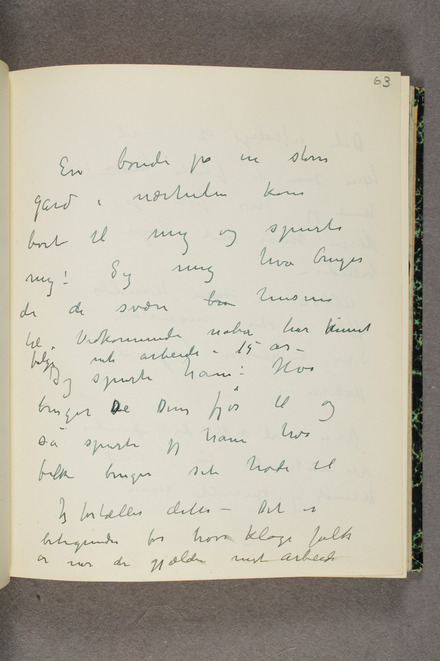 63
En bonde på en stor
gård i nærheten kom
bort til mig og spurte
mig: Sig mig hva bruger
de de svære husene
til. Vedkommende nabo har kunnet
følge mit arbeide i 15 år –
Jeg spurte ham: Hva
bruger De Deres fjøs til og
så spurte jeg ham hva
folk bruger sit hode til
Jeg fortæller dette – Det er
betegnende for hvor kloge folk
er når det gjælder mit arbeide